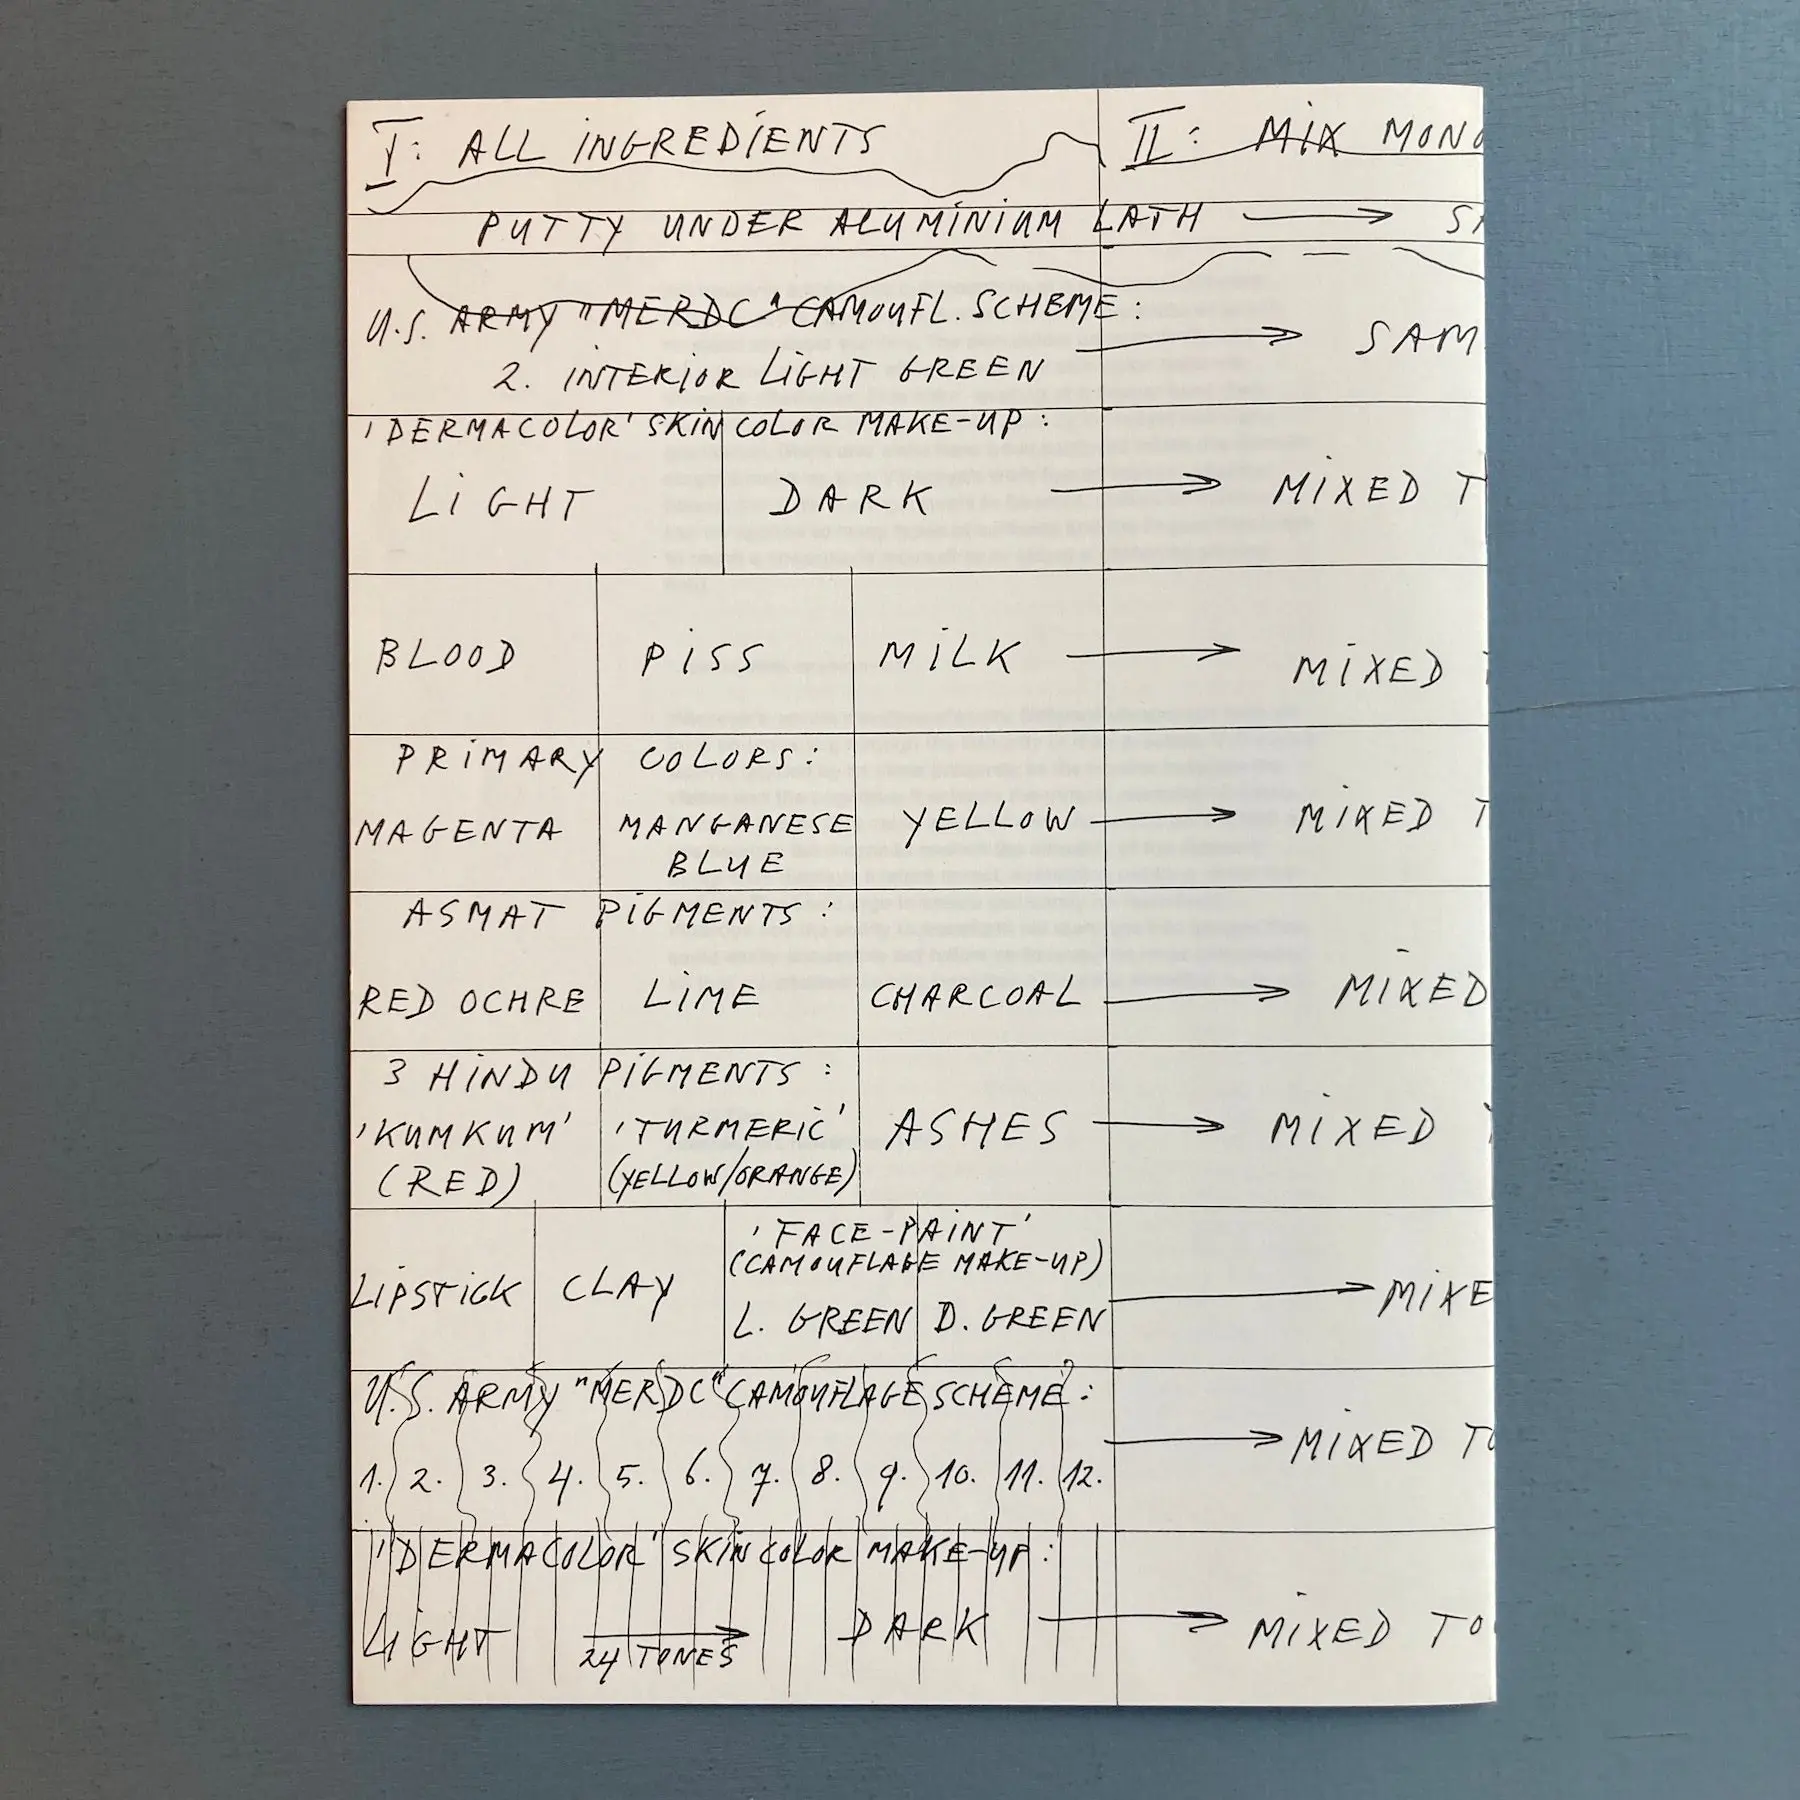 I: ALL INGREDIENTS
II: MIX MONO
PUTTY UNDER ALUMINIUM LATH → SA
U.S. ARMY "MERDC" CAMOUFL. SCHEME:
2. INTERIOR LIGHT GREEN → SAM
'DERMACOLOR' SKIN COLOR MAKE-UP:
LIGHT DARK → MIXED T
BLOOD PISS MILK → MIXED
PRIMARY COLORS:
MAGENTA MANGANESE YELLOW → MIXED T
BLUE
ASMAT PIGMENTS:
RED OCHRE LIME CHARCOAL → MIXED
3 HINDU PIGMENTS:
'KUMKUM' 'TURMERIC' ASHES → MIXED
(RED) (YELLOW/ORANGE)
'FACE-PAINT'
(CAMOUFLAGE MAKE-UP)
LIPSTICK CLAY L. GREEN D. GREEN → MIXE
U.S. ARMY "MERDC" CAMOUFLAGE SCHEME:
1. 2. 3. 4. 5. 6. 7. 8. 9. 10. 11. 12. → MIXED TO
'DERMACOLOR' SKIN COLOR MAKE-UP:
LIGHT → DARK → MIXED TO
24 TONES